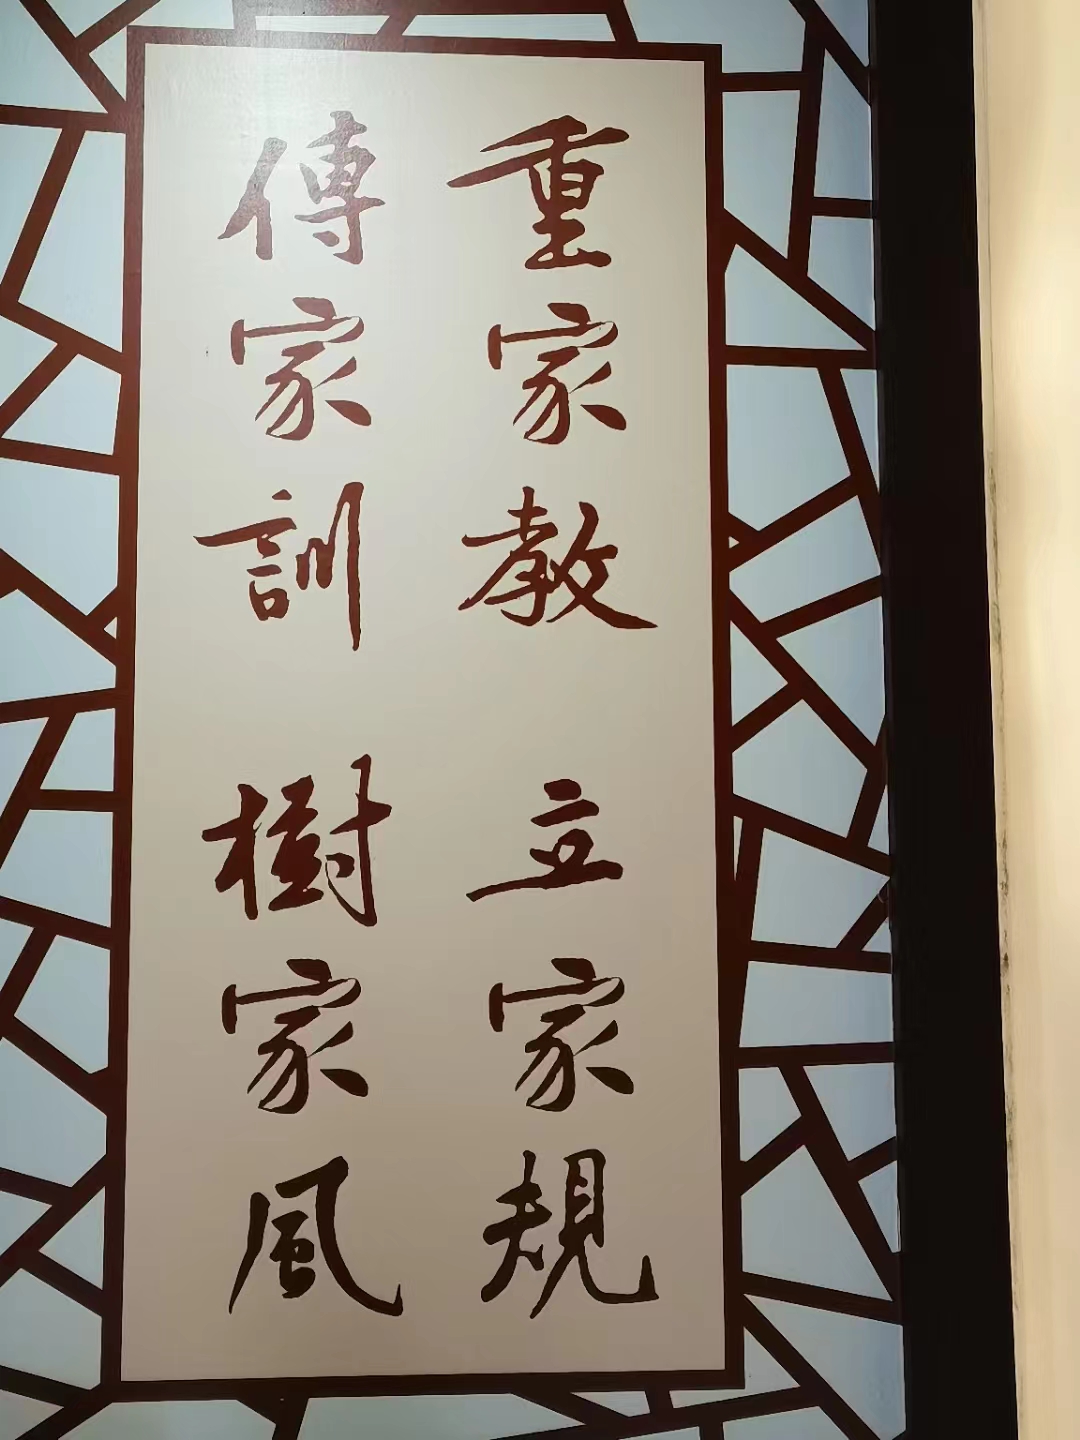 重家教 立家規
傳家訓 樹家風